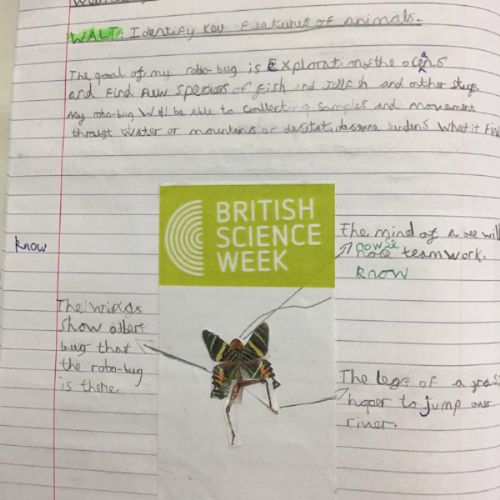 WALT: Identify key features of animals.
The goal of my robo-bug is Exploration of the oceans
and find new species of fish and Jellfish and other stuge
my robo-bug Will be able to collecting samples and movement
through water or mountins or
know
BRITISH
SCIENCE
WEEK
The mind of a bee will
nowse
teamwork.
know
The wings
show other
bug that
the robo-bug
is there.
The legs of a grass
hoper to jump over
river.